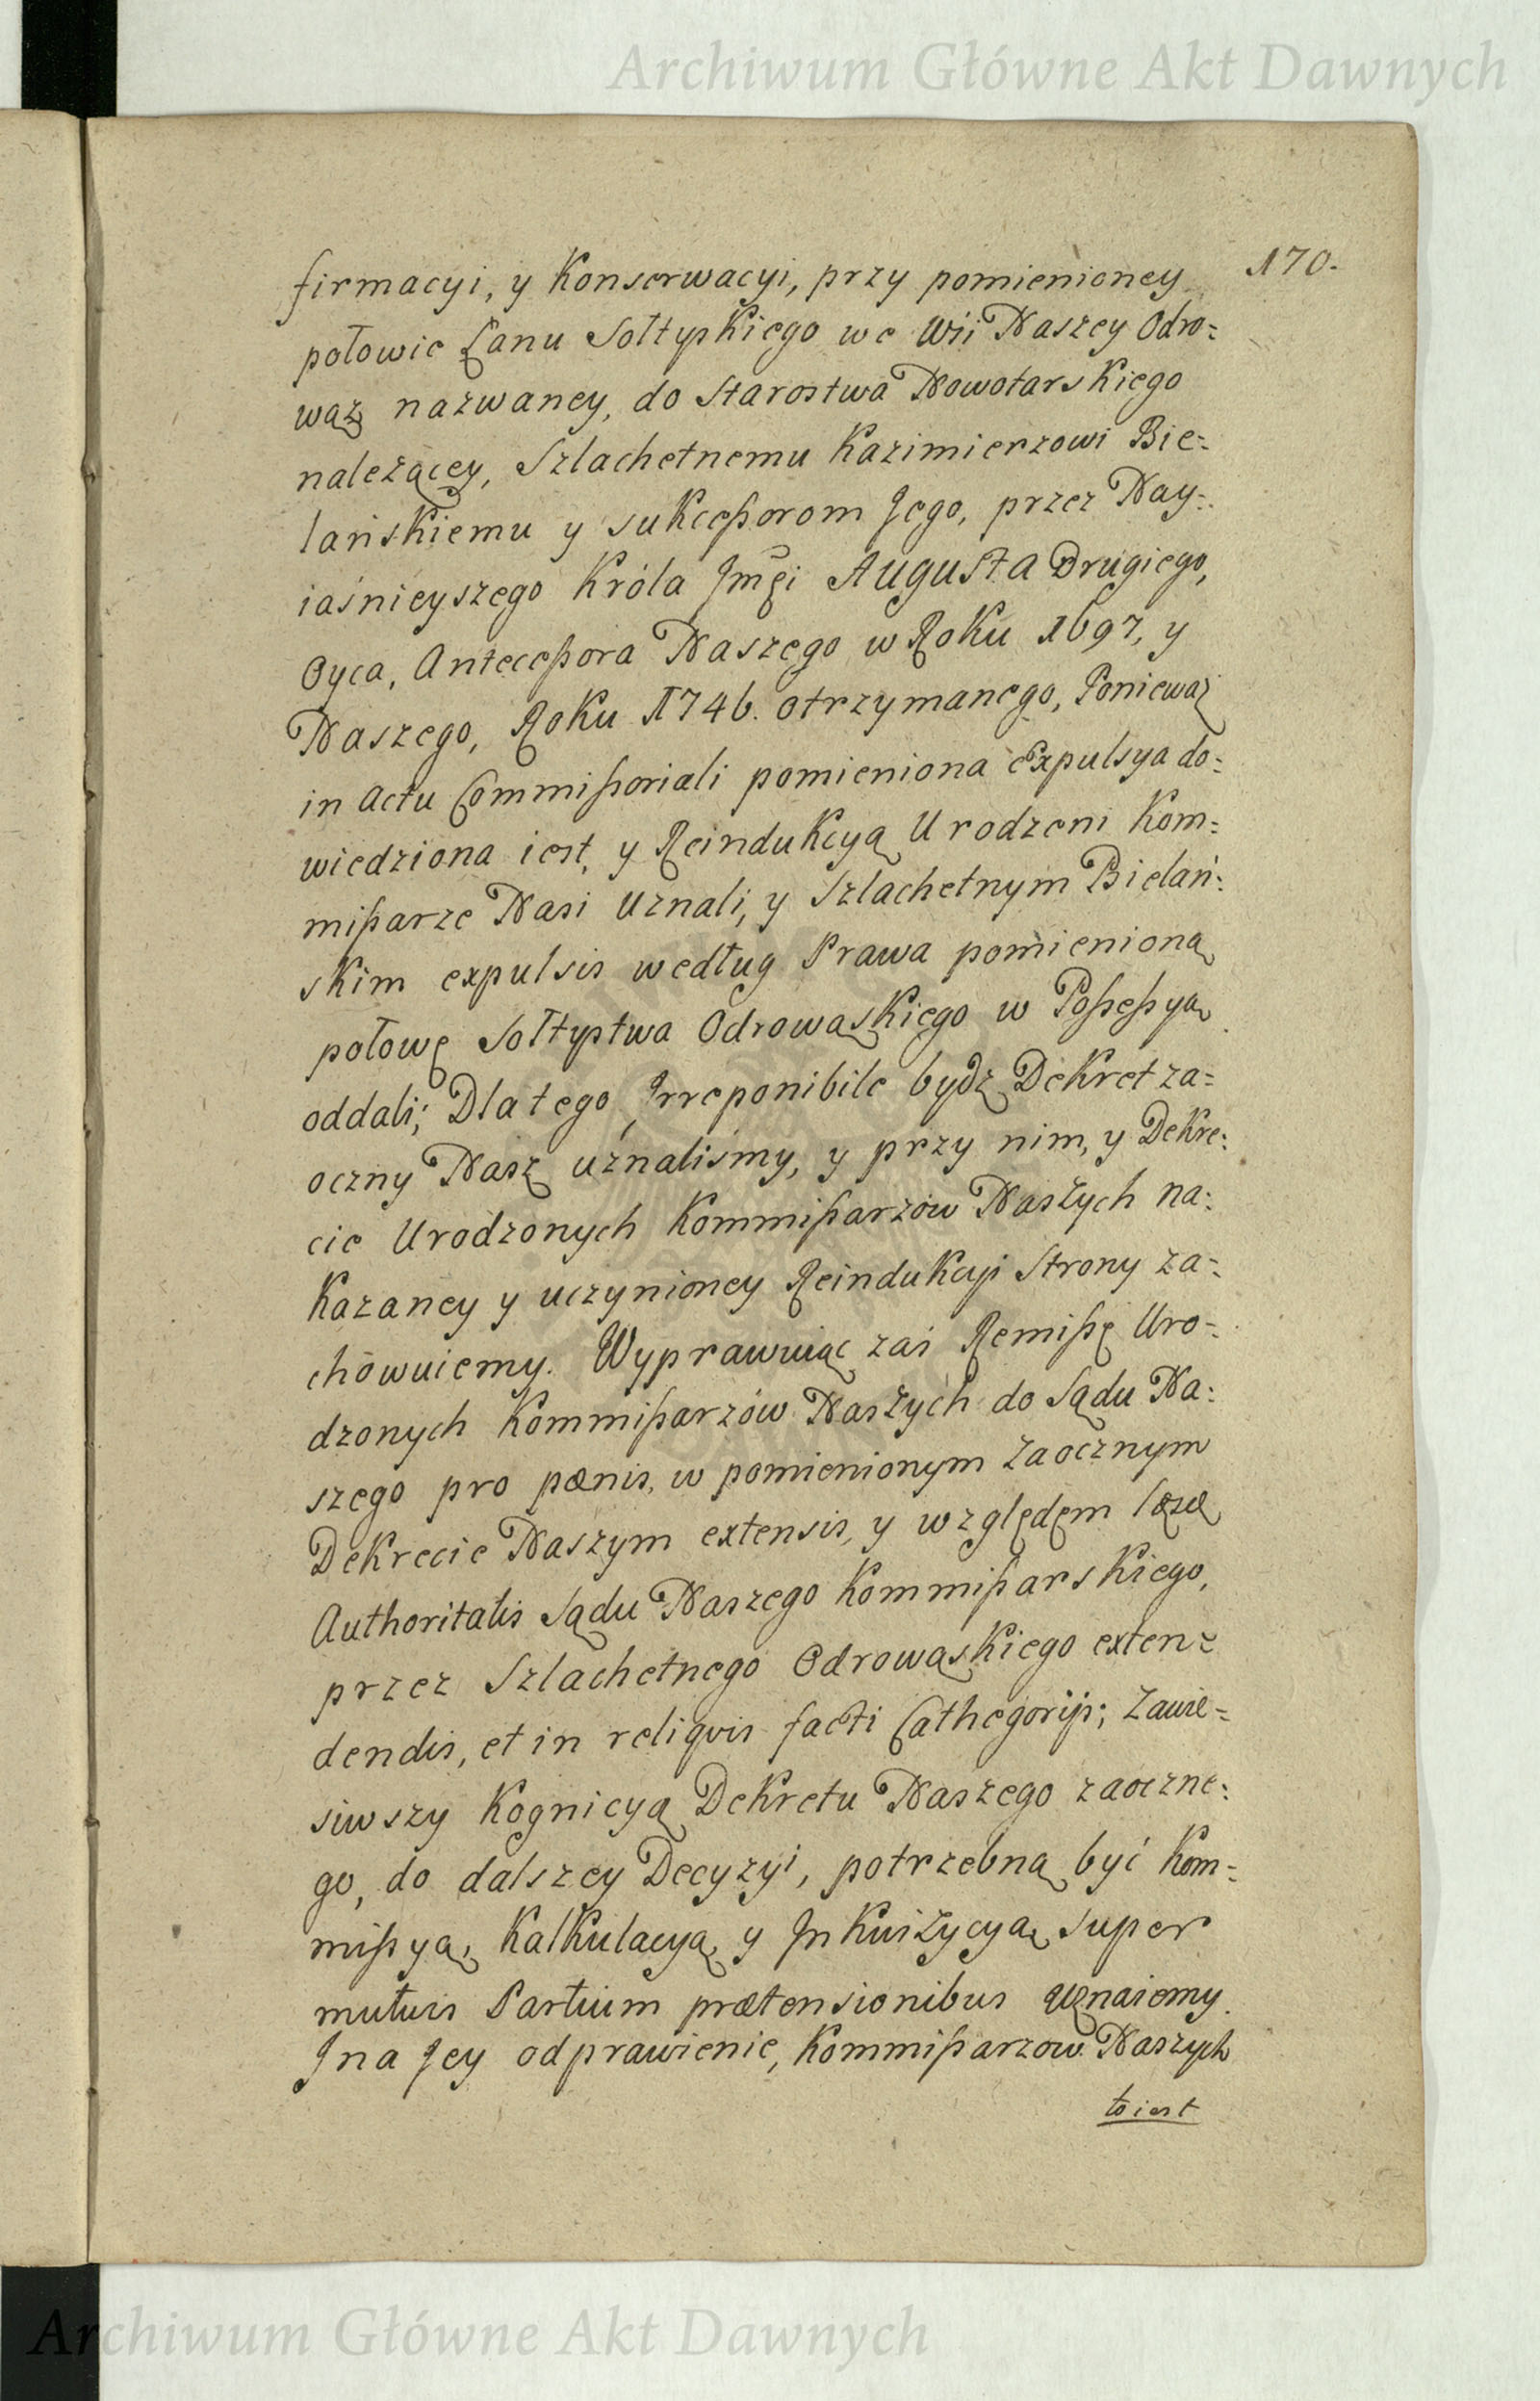 Archiwum Główne Akt Dawnych
170.
firmacyi, y Konserwacyi, przy pomienioney
połowie Łanu Sołtyskiego we Wii Naszey Odro=
wąz nazwaney, do Starostwa Nowotarskiego
należącey, Szlachetnemu Kazimierzowi Bie=
lańskiemu y sukceßorom Jego, przez Nay=
iaśnieyszego Króla Jmći Augusta Drugiego,
Oyca, Anteceßora Naszego w Roku 1697, y
Naszego, Roku 1746. otrzymanego, Ponieważ
in Actu Commißoriali pomieniona Expulsya do=
wiedziona iest, y Reindukcyą Urodzeni Kom=
mißarze Nasi Uznali, y Szlachetnym Bielań=
skim expulsis według Prawa pomienioną
połowę Sołtystwa Odrowąskiego w Poßeßyą
oddali; Dla tego Irreponibile bydz Dekret za=
oczny Nasz uznaliśmy, y przy nim, y Dekre=
cie Urodzonych Kommißarzów Naszych na=
Kazaney y uczynioney Reindukcyi Strony za=
chowuiemy. Wyprawuiąc zaś Remißę Uro=
dzonych Kommißarzów Naszych do Sądu Na=
szego pro pœnis, w pomienionym Zaocznym
Dekrecie Naszym extensis, y względem læsæ
Authoritatis Sądu Naszego Kommißarskiego,
przez Szlachetnego Odrowąskiego exten=
dendis, et in reliqvis facti Cathegorijs; Zawie=
siwszy Kognicyą Dekretu Naszego zaoczne=
go, do dalszey Decyzyi, potrzebną być Kom=
mißyą, Kalkulacyą, y Inkwizycyą, super
mutuis Partium prætensionibus Uznaiemy.
I na Jey odprawienie, Kommißarzow Naszych
to iest
Archiwum Główne Akt Dawnych